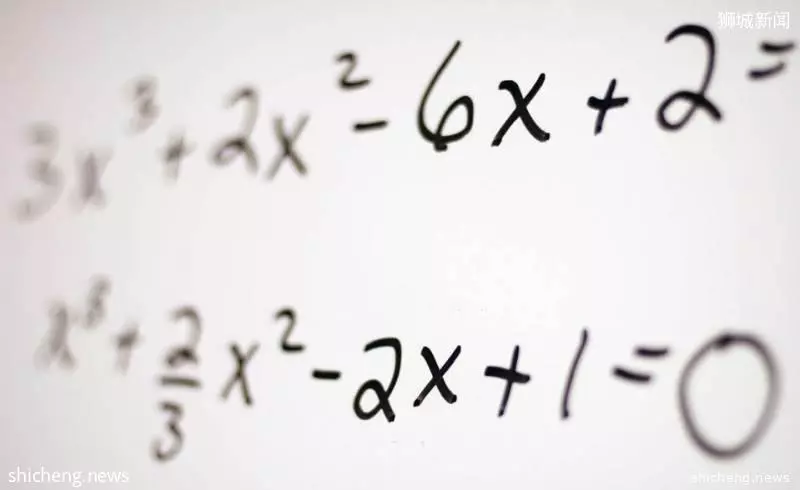 狮城新闻
3x³ + 2x² - 6x + 2 =
x³ + 2/3 x² - 2x + 1 = 0
shicheng.news
shicheng.news